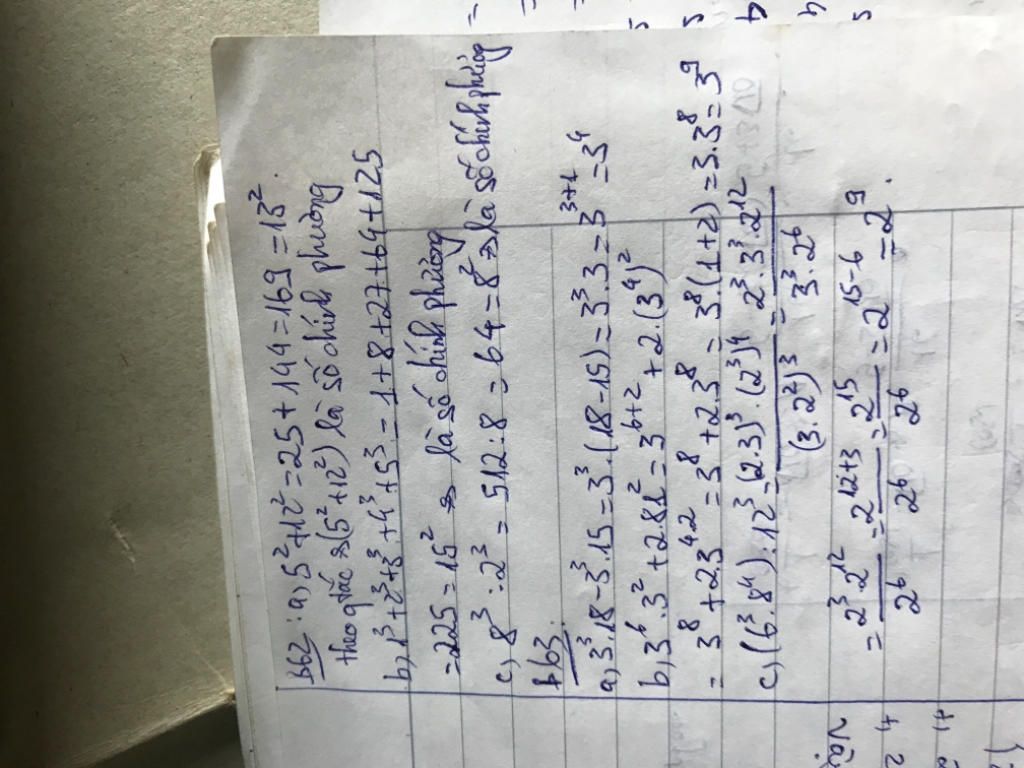 B62: a, 5² + 12² = 25 + 144 = 169 = 13².
theo q tắc ⇒ (5² + 12²) là số chính phường
b, 1³ + 2³ + 3³ + 4³ + 5³ = 1 + 8 + 27 + 64 + 125
= 225 = 15² ⇒ là số chính phường
c, 8³ : 2³ = 512 : 8 = 64 = 8² ⇒ là số chính phường
B63.
a, 3³.18 - 3³.15 = 3³.(18 - 15) = 3³.3 = 3³⁺¹ = 3⁴
b, 3⁶.3² + 2.81² = 3⁶⁺² + 2.(3⁴)²
= 3⁸ + 2.3⁴·² = 3⁸ + 2.3⁸ = 3⁸(1 + 2) = 3.3⁸ = 3⁹
c, (6³.8⁴) : 12³ = (2.3)³.(2³)⁴ / (3.2²)³ = 2³.3³.2¹² / 3³.2⁶
= 2³.2¹² / 2⁶ = 2¹²⁺³ / 2⁶ = 2¹⁵ / 2⁶ = 2¹⁵⁻⁶ = 2⁹.